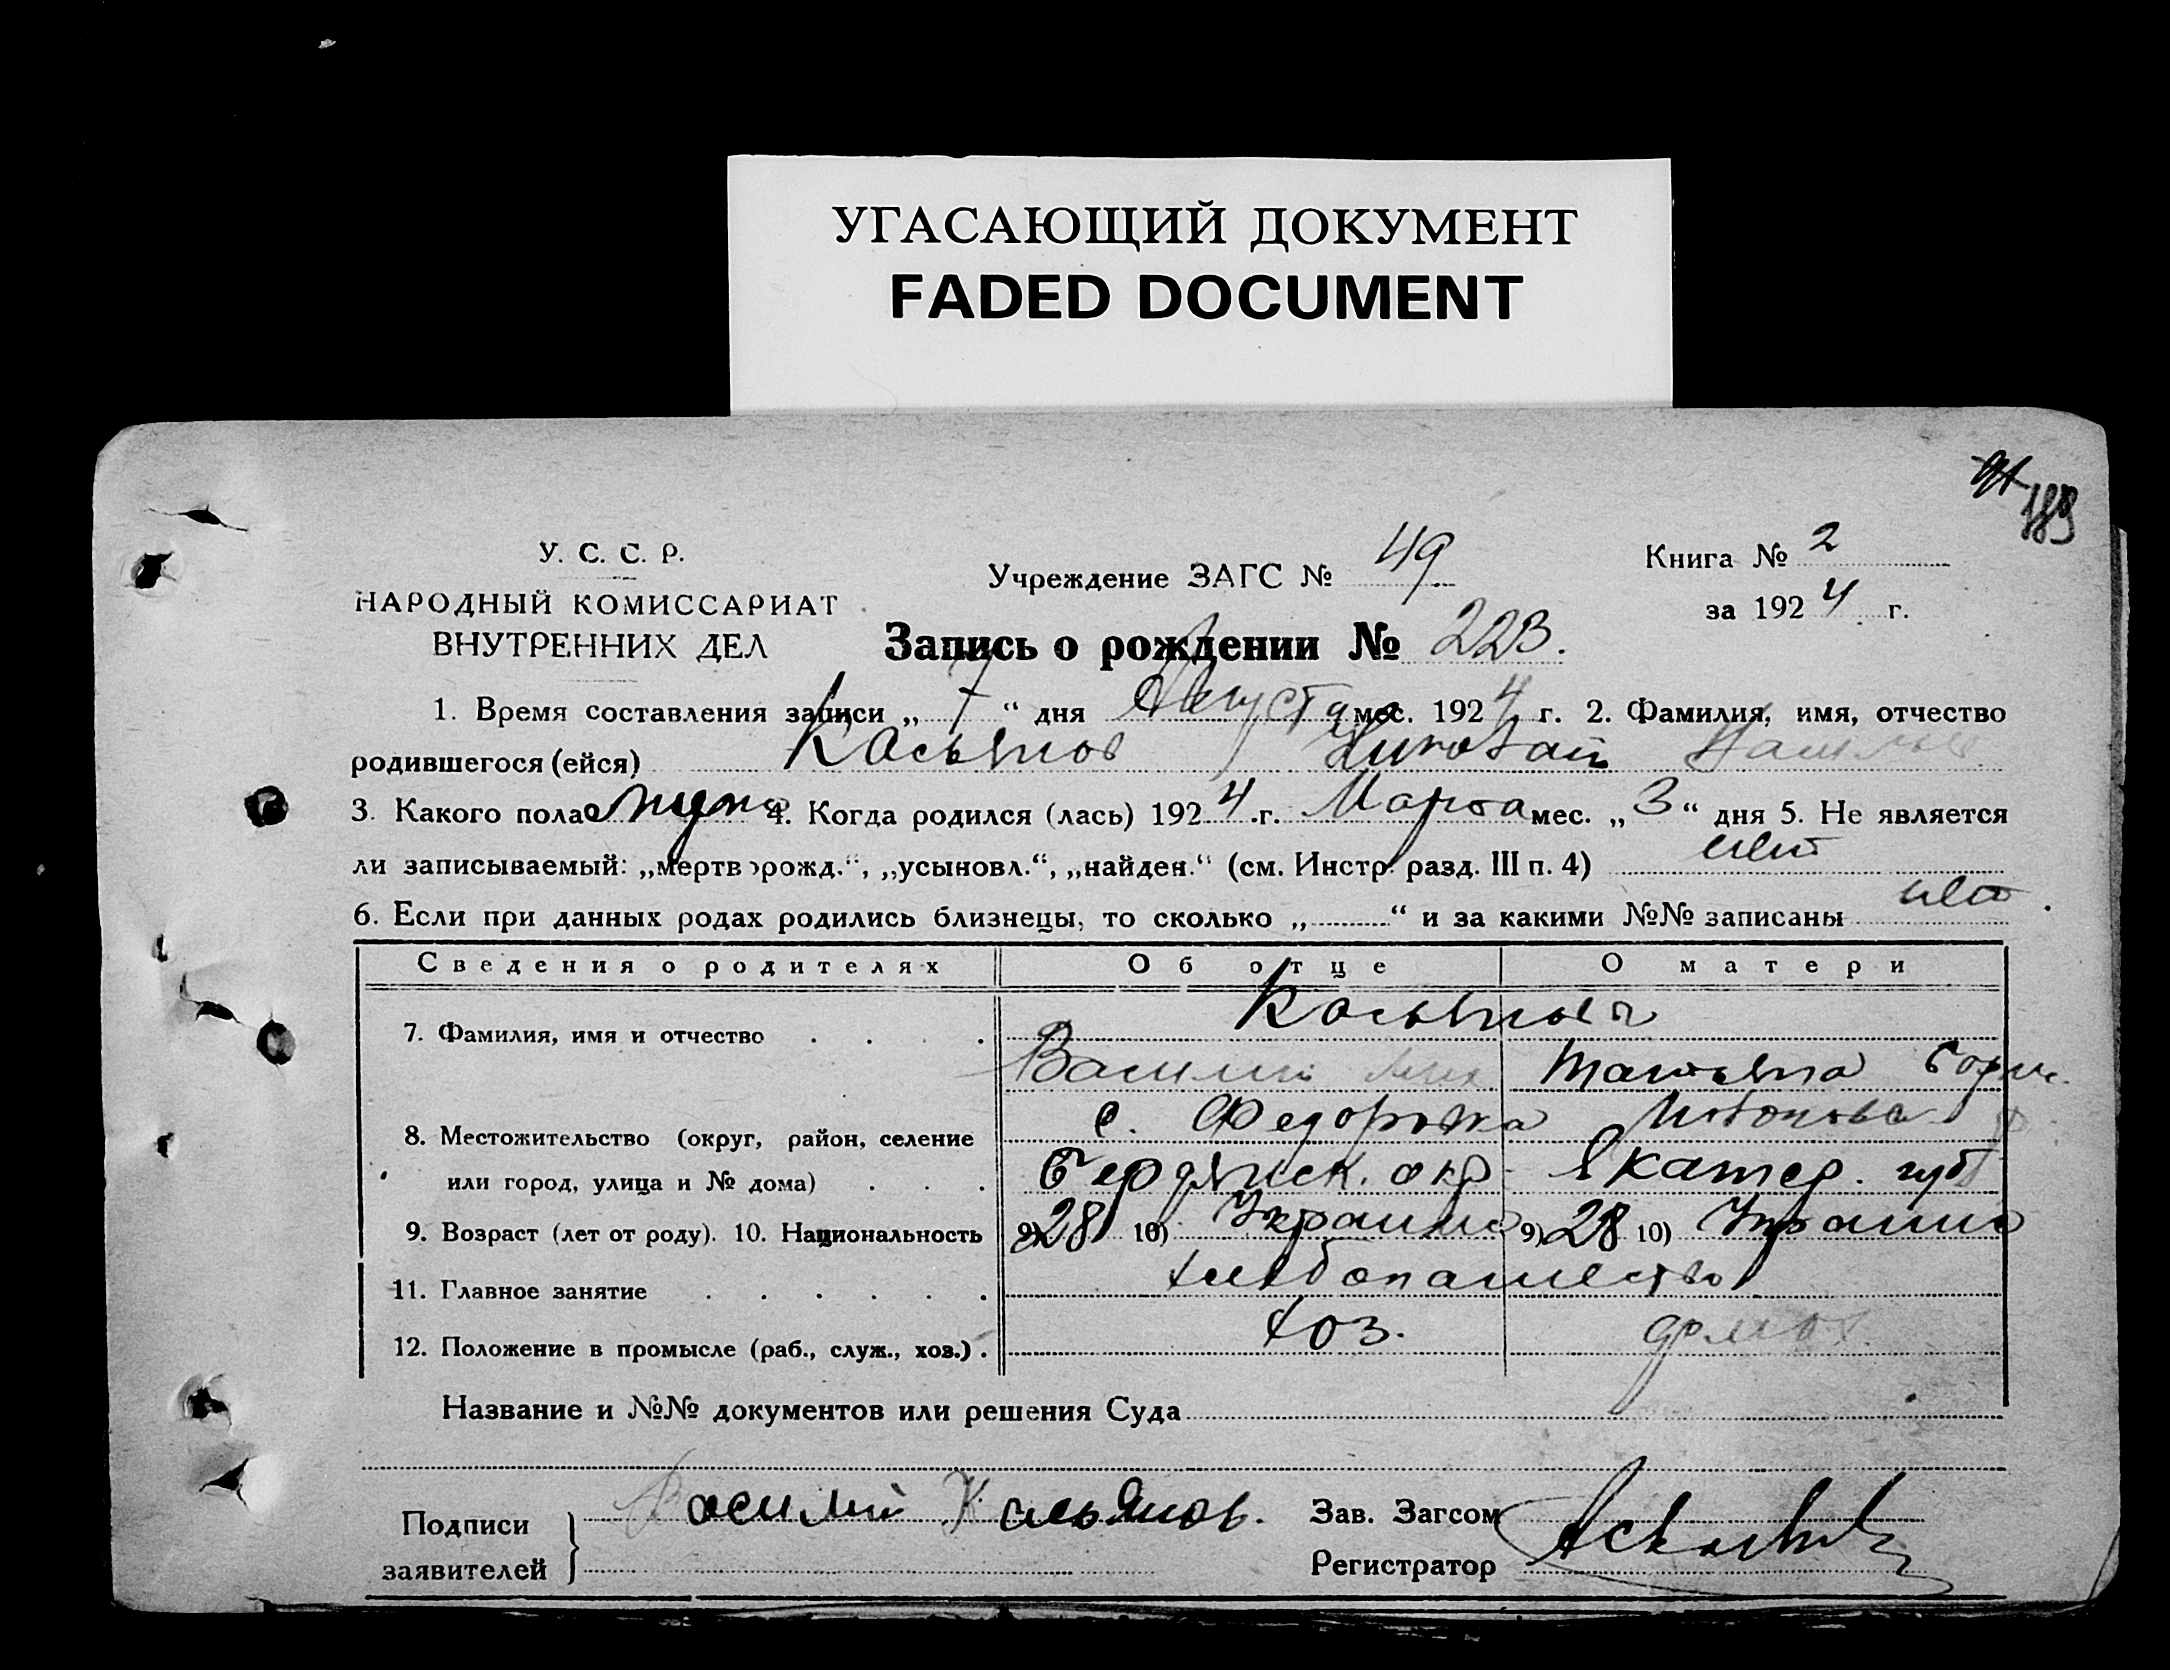 УГАСАЮЩИЙ ДОКУМЕНТ
FADED DOCUMENT
189
У. С. С. Р.
НАРОДНЫЙ КОМИССАРИАТ
ВНУТРЕННИХ ДЕЛ
Учреждение ЗАГС № 49
Книга № 2
за 1924 г.
Запись о рождении № 223.
1. Время составления записи „ 7 “ дня Августа мес. 1924 г. 2. Фамилия, имя, отчество
родившегося (ейся) Касьянов Николай
3. Какого пола муж 4. Когда родился (лась) 1924 г. Марта мес. „ 3 “ дня 5. Не является
ли записываемый: „мертворожд.“, „усыновл.“, „найден.“ (см. Инстр. разд. III п. 4) нет
6. Если при данных родах родились близнецы, то сколько „ “ и за какими №№ записаны нет.
Сведения о родителях Об отце О матери
7. Фамилия, имя и отчество Касьянов
Василий Татьяна
8. Местожительство (округ, район, селение с. Федоровка
или город, улица и № дома) Бердянск. окр. Екатер. губ
9. Возраст (лет от роду). 10. Национальность 9) 28 10) Украин 9) 28 10) Украин
11. Главное занятие хлебопашество
12. Положение в промысле (раб., служ., хоз.) хоз. домох
Название и №№ документов или решения Суда
Подписи заявителей Василий Касьянов.
Зав. Загсом
Регистратор